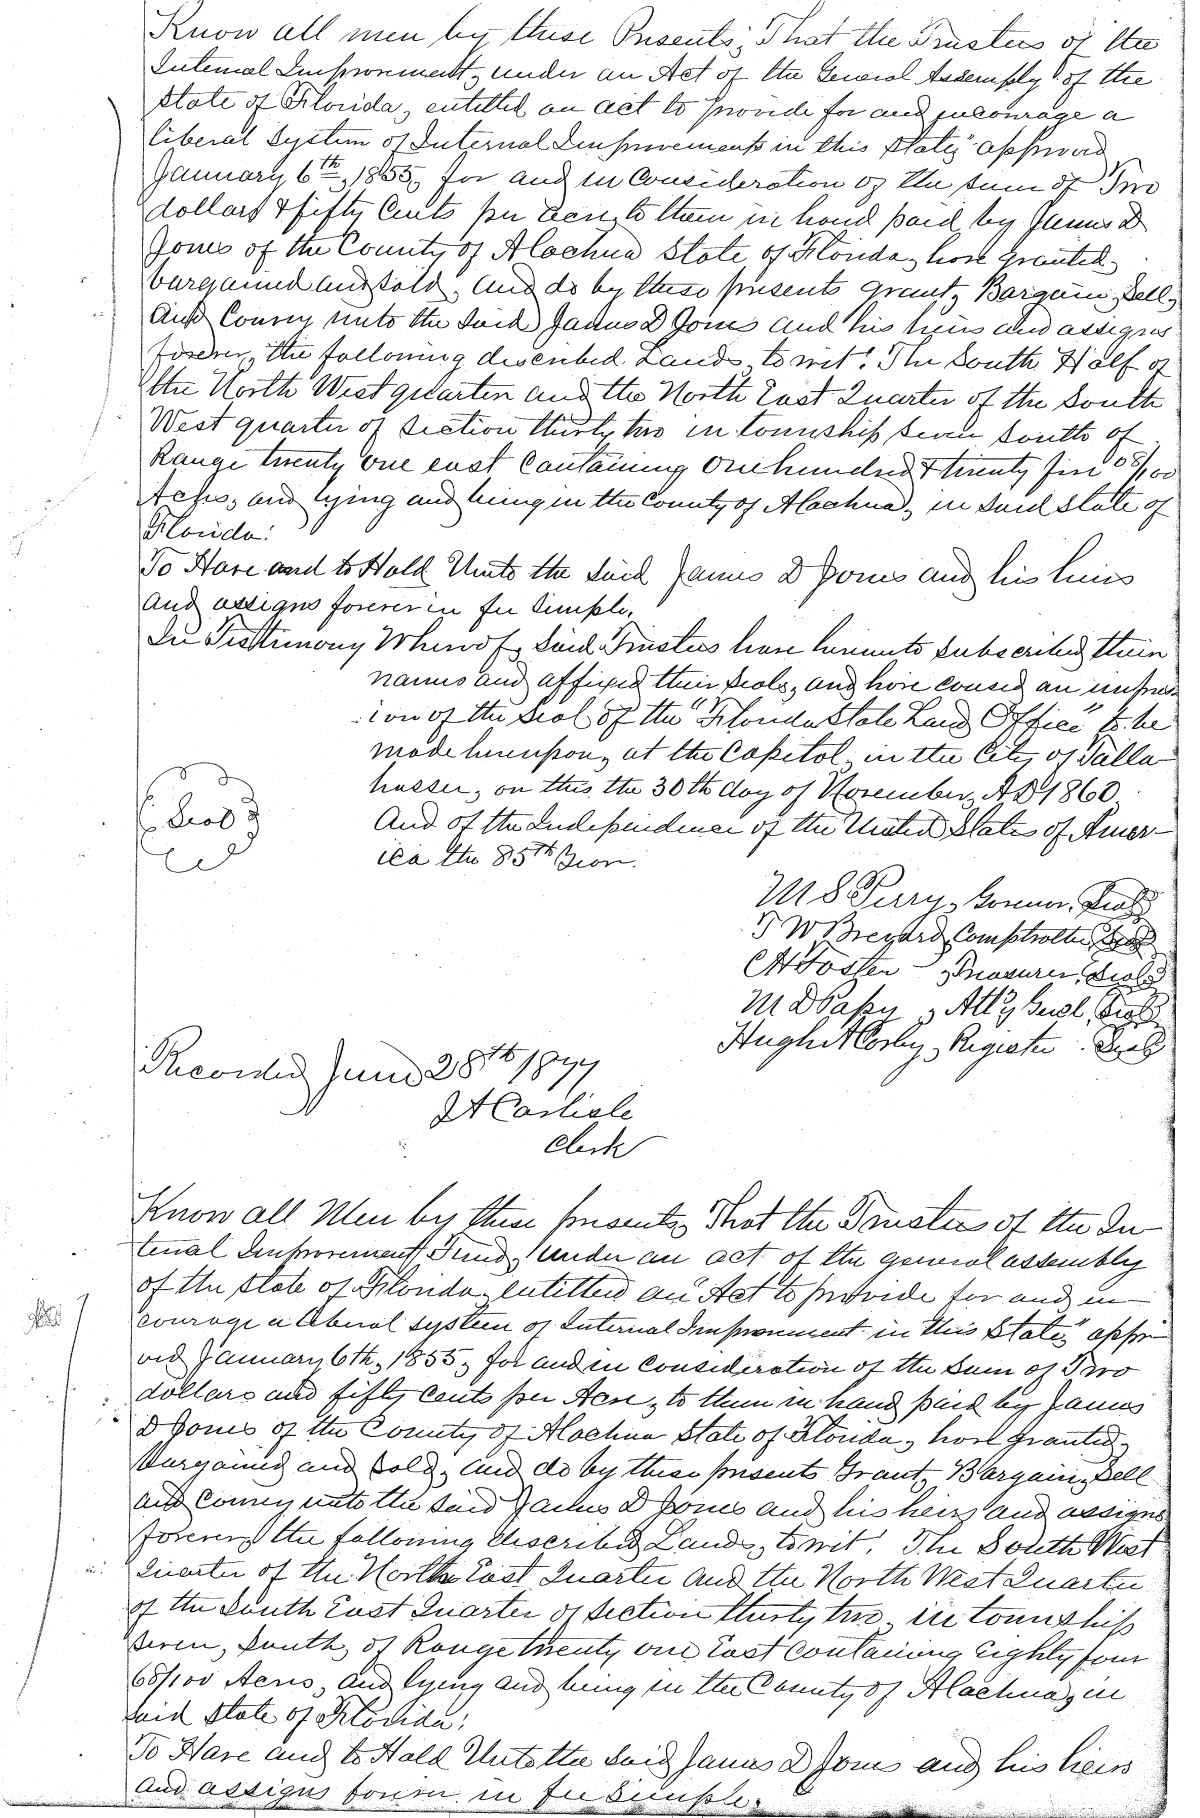 Know all men by these Presents; That the Trustees of the
Internal Improvement, under an Act of the General Assembly of the
State of Florida, entitled an act to provide for and encourage a
liberal System of Internal Improvements in this State," approved
January 6th, 1855, for and in Consideration of the sum of Two
dollars & fifty Cents per Acre, to them in hand paid by James D
Jones of the County of Alachua State of Florida, have granted,
bargained and sold, and do by these presents grant, Bargain, Sell,
And Convey unto the said James D Jones and his heirs and assigns
forever, the following described Lands, to wit: The South Half of
the North West quarter and the North East Quarter of the South
West quarter of Section thirty two in township seven South of
Range twenty one east Containing One hundred & twenty five 08/100
Acres, and lying and being in the County of Alachua, in said State of
Florida:
To Have and to Hold Unto the said James D Jones and his heirs
and assigns forever in fee simple.
In Testimony Whereof, Said Trustees have hereunto subscribed their
names and affixed their seals, and have caused an impress
ion of the Seal of the "Florida State Land Office" to be
made hereupon, at the Capitol, in the City of Talla
hassee, on this the 30th day of November, AD 1860
And of the Independence of the United States of Amer-
ica the 85th Year.
Seal
M S Perry, Govenor, Seal
T W Brevard, Comptroller, Seal
C H Foster - Treasurer, Seal
M D Papy, Atty Genl, Seal
Hugh A Corley, Register. Seal
Recorded June 28th 1877
J A Carlisle
Clerk
Know all Men by these presents, That the Trustees of the In-
ternal Improvement Fund, under an act of the general assembly
of the state of Florida, entitled an "Act to provide for and en-
courage a liberal system of Internal Improvement in this State," appro
ved January 6th, 1855, for and in consideration of the sum of Two
dollars and fifty cents per Acre, to them in hand paid by James
D Jones of the County of Alachua State of Florida, have granted,
Bargained and sold, and do by these presents Grant, Bargain, Sell
and Convey unto the said James D Jones and his heirs and assigns
forever, the following described Lands, to wit: The South West
Quarter of the North East Quarter and the North West Quarter
of the South East Quarter of Section thirty two, in township
seven, South, of Range twenty one East containing Eighty four
68/100 Acres, and lying and being in the County of Alachua, in
said State of Florida:
To Have and to Hold Unto the said James D Jones and his heirs
and assigns forever in fee simple.